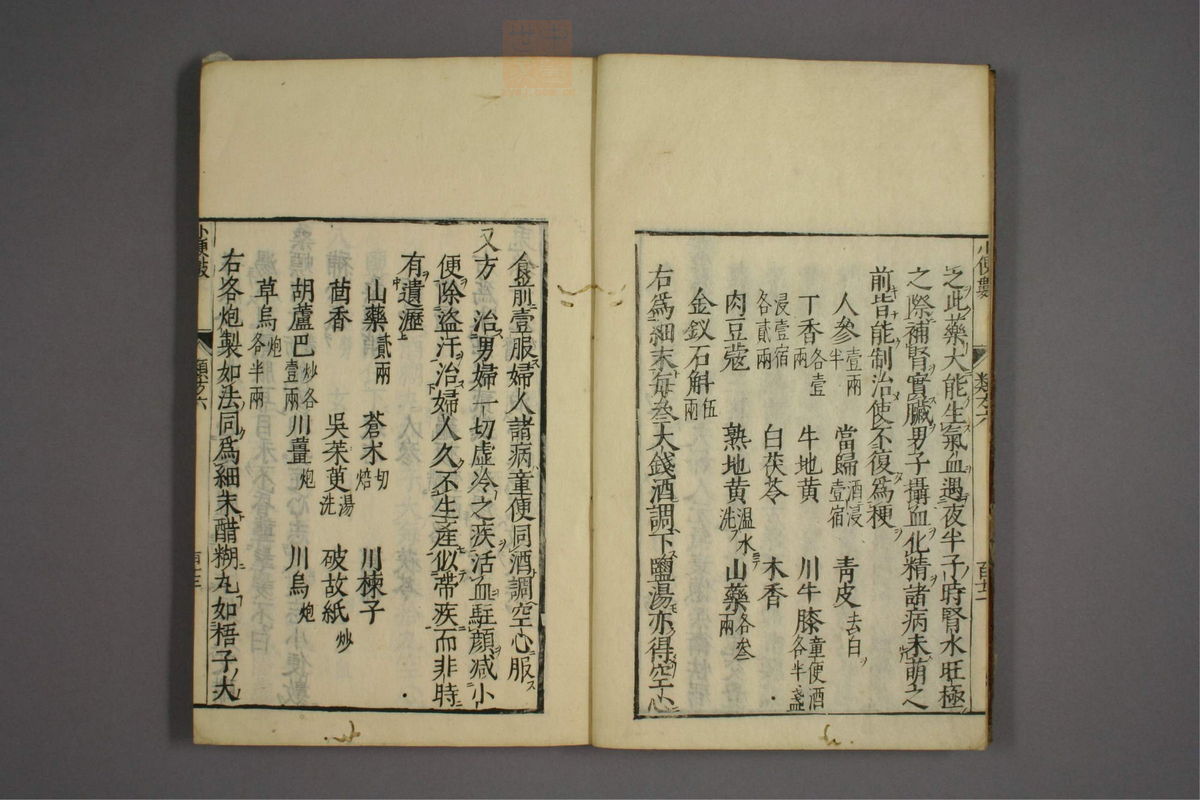 小便數
類方六
百十二
之此藥大能生氣血遇夜半子時腎水旺極
之際補腎實臟男子攝血化精諸病未萌之
前皆能制治使不復爲梗
人參壹兩半 當歸酒浸壹宿 青皮去白
丁香各壹兩 牛地黄 川牛膝童便酒各半盞
浸壹宿各貳兩 白茯苓 木香
肉豆蔻 熟地黄溫水洗 山藥各叄兩
金釵石斛伍兩
右爲細末每叄大錢酒調下鹽湯亦得空心
食前壹服婦人諸病童便同酒調空心服
又方治男婦一切虛冷之疾活血駐顔減小
便除盜汗治婦人久不生產似帶疾而非時
有遺瀝
山藥貳兩 蒼朮切焙 川楝子
茴香 吳茱萸湯洗 破故紙炒
胡蘆巴炒各壹兩 川薑炮 川烏炮
草烏炮各半兩
右各炮製如法同爲細末醋糊丸如梧子大
類方六
百十三